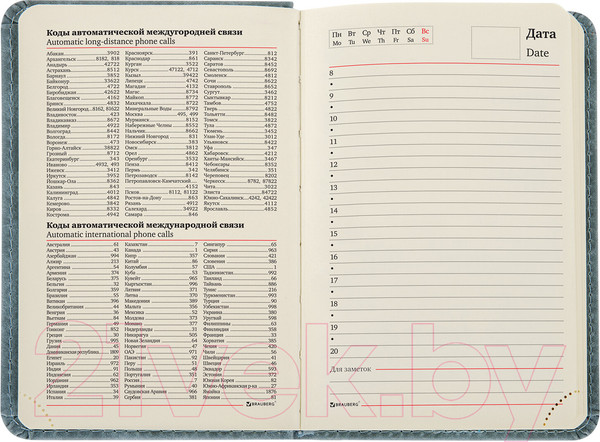 Коды автоматической междугородней связи
Automatic long-distance phone calls
Абакан 3902
Архангельск 8182, 818
Анадырь 42722
Астрахань 8512
Барнаул 3852
Байконур 33622
Белгород 4722
Биробиджан 42622
Благовещенск 4162
Брянск 4832
Великий Новгород 8162, 81622
Владивосток 423
Владикавказ 8672
Владимир 4922
Волгоград 8442
Вологда 8172
Воронеж 473
Горно-Алтайск 38822
Грозный 8712
Екатеринбург 343
Иваново 4932, 493
Ижевск 3412
Иркутск 3952
Йошкар-Ола 8362
Казань 843
Калининград 4012
Калуга 4842
Кемерово 3842
Киров 8332
Кострома 4942
Красноярск 391
Краснодар 861
Курган 3522
Курск 47122, 4712
Кызыл 39422
Липецк 4742
Магадан 4132
Магас 8734
Майкоп 8772
Махачкала 8722
Минеральные Воды 8792
Москва 495, 499
Мурманск 8152
Набережные Челны 8552
Нальчик 8662
Нижний Новгород 831
Новосибирск 383
Омск 3812
Орел 4862
Оренбург 3532
Пенза 8412
Пермь 342
Петрозаводск 8142
Петропавловск-Камчатский
4152
Псков 8112, 81122
Ростов-на-Дону 863
Рязань 4912
Салехард 34922
Самара 846
Санкт-Петербург 812
Саранск 8342
Саратов 8452
Севастополь 8692
Смоленск 4812
Сочи 8622
Ставрополь 8652
Сургут 3462
Сыктывкар 8212
Тамбов 4752
Тверь 4822
Тольятти 8482
Томск 3822
Тула 4872
Тюмень 3452
Улан-Уде 3012
Ульяновск 8422
Уфа 347
Хабаровск 4212
Ханты-Мансийск 3467
Чебоксары 8352
Челябинск 351
Череповец 8202
Черкесск 8782, 87822
Чита 3022
Элиста 84722
Южно-Сахалинск 4242, 42422
Якутск 4112
Ярославль 4852
Коды автоматической международной связи
Automatic international phone calls
Австралия 61
Австрия 43
Азербайджан 994
Алжир 213
Аргентина 54
Армения 374
Беларусь 375
Бельгия 32
Болгария 359
Бразилия 55
Ватикан 396
Великобритания 44
Венгрия 36
Вьетнам 84
Германия 49
Гонконг 852
Греция 30
Грузия 995
Дания 45
Доминиканская республика 1809
Египет 20
Израиль 972
Индия 91
Индонезия 62
Иордания 962
Ирландия 353
Испания 34
Италия 39
Казахстан 7
Канада 1
Кипр 357
Китай 86
Колумбия 57
Куба 53
Кувейт 965
Кыргызстан 996
Латвия 371
Литва 370
Македония 389
Мальта 356
Мексика 52
Молдова 373
Монако 377
Нидерланды 31
Никарагуа 505
Новая Зеландия 64
Норвегия 47
ОАЭ 971
Пакистан 92
Перу 51
Польша 48
Португалия 351
Россия 7
Румыния 40
Саудовская Аравия 966
Сербия 381
Сингапур 65
Сирия 963
Словакия 421
Словения 386
США 1
Таджикистан 992
Таиланд 66
Тайвань 886
Тунис 216
Туркменистан 993
Турция 90
Узбекистан 998
Украина 380
Уругвай 598
Филиппины 63
Финляндия 358
Франция 33
Хорватия 385
Чехия 420
Чили 56
Швейцария 41
Швеция 46
Эквадор 593
Эстония 372
Южная Корея 82
Южно-Африканская р-ка 27
Ямайка 1876
Япония 81
BRAUBERG
Пн Вт Ср Чт Пт Сб Вс
Mo Tu We Th Fr Sa Su
Дата
Date
8
9
10
11
12
13
14
15
16
17
18
19
20
Для заметок
BRAUBERG
21vek.by